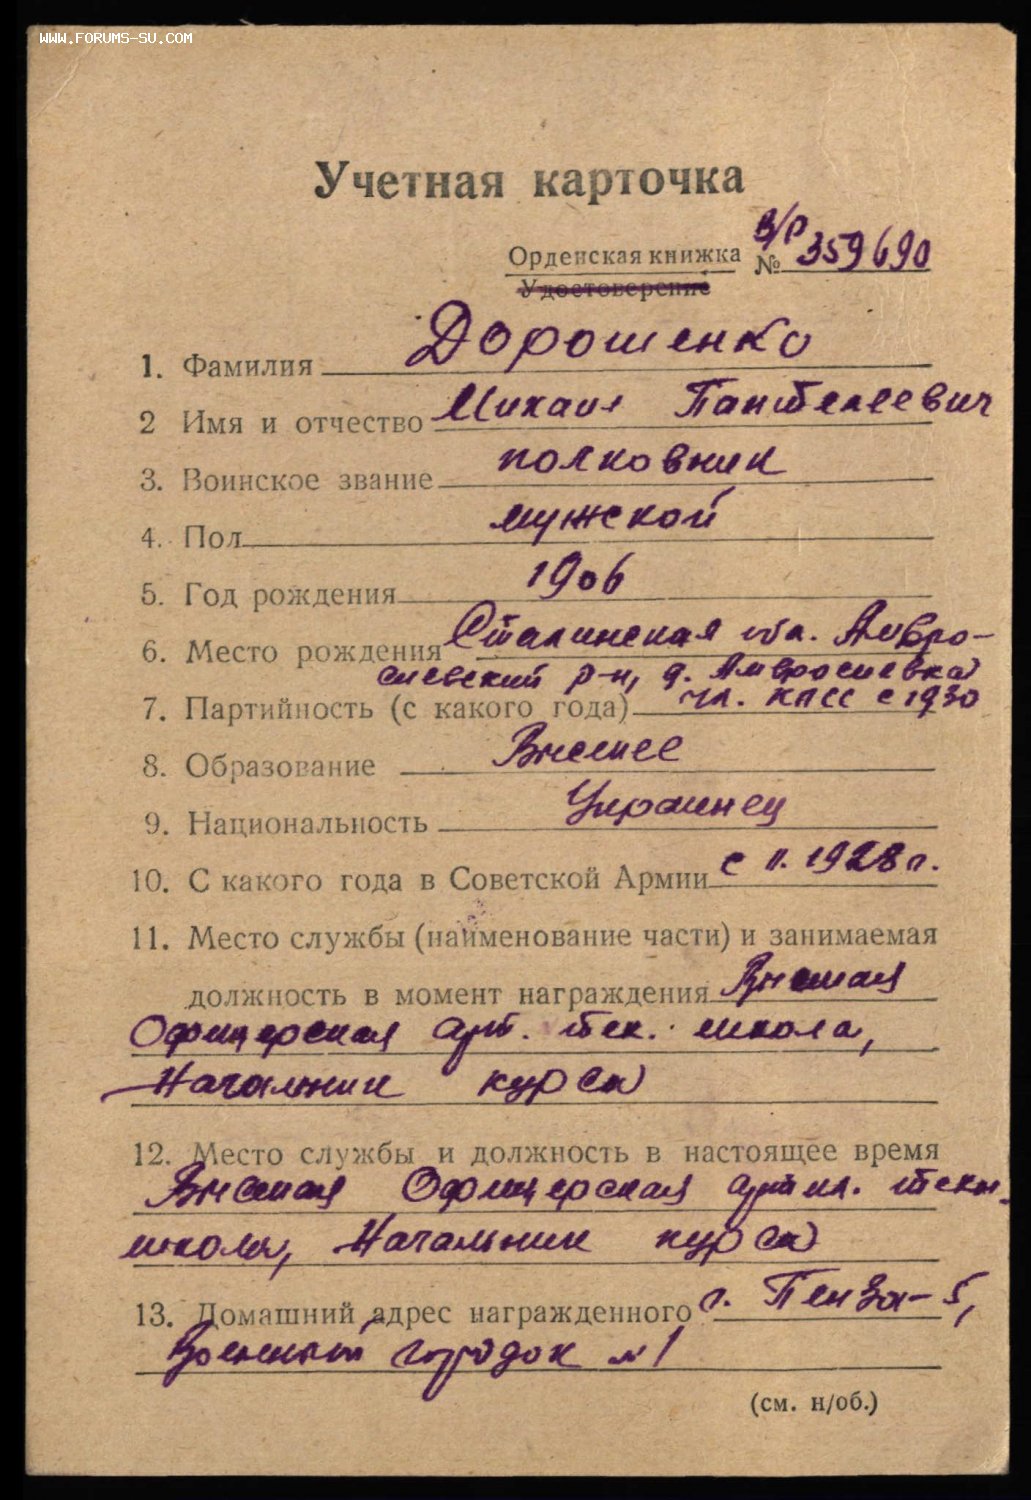 WWW.FORUMS-SU.COM
Учетная карточка
Орденская книжка № в/р 359690
Удостоверение
1. Фамилия Дорошенко
2 Имя и отчество Михаил Пантелеевич
3. Воинское звание полковник
4. Пол мужской
5. Год рождения 1906
6. Место рождения Сталинская обл. Амвро-
сиевский р-н, д. Амвросиевка
7. Партийность (с какого года) чл. КПСС с 1930
8. Образование Высшее
9. Национальность Украинец
10. С какого года в Советской Армии с 1928 г.
11. Место службы (наименование части) и занимаемая
должность в момент награждения Высшая
Офицерская арт. тех. школа,
Начальник курса
12. Место службы и должность в настоящее время
Высшая Офицерская артил. техн.
школа, Начальник курса
13. Домашний адрес награжденного г. Пенза-5,
Военный городок №1
(см. н/об.)